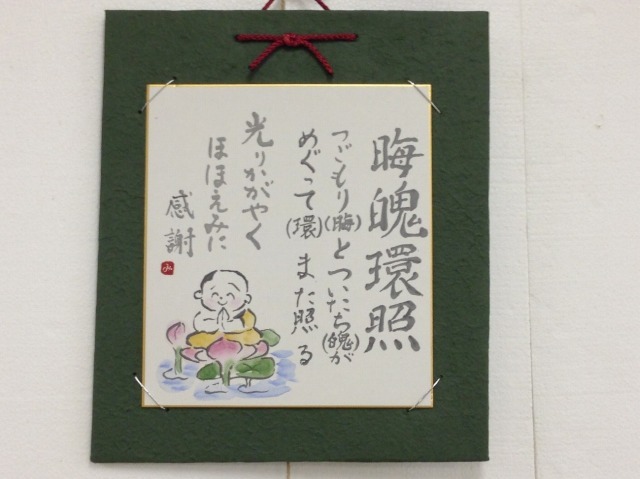 晦魄環照
つごもり(晦)とついたち(魄)が
めぐって(環)また照る
光りかがやく
ほほえみに
感謝
み